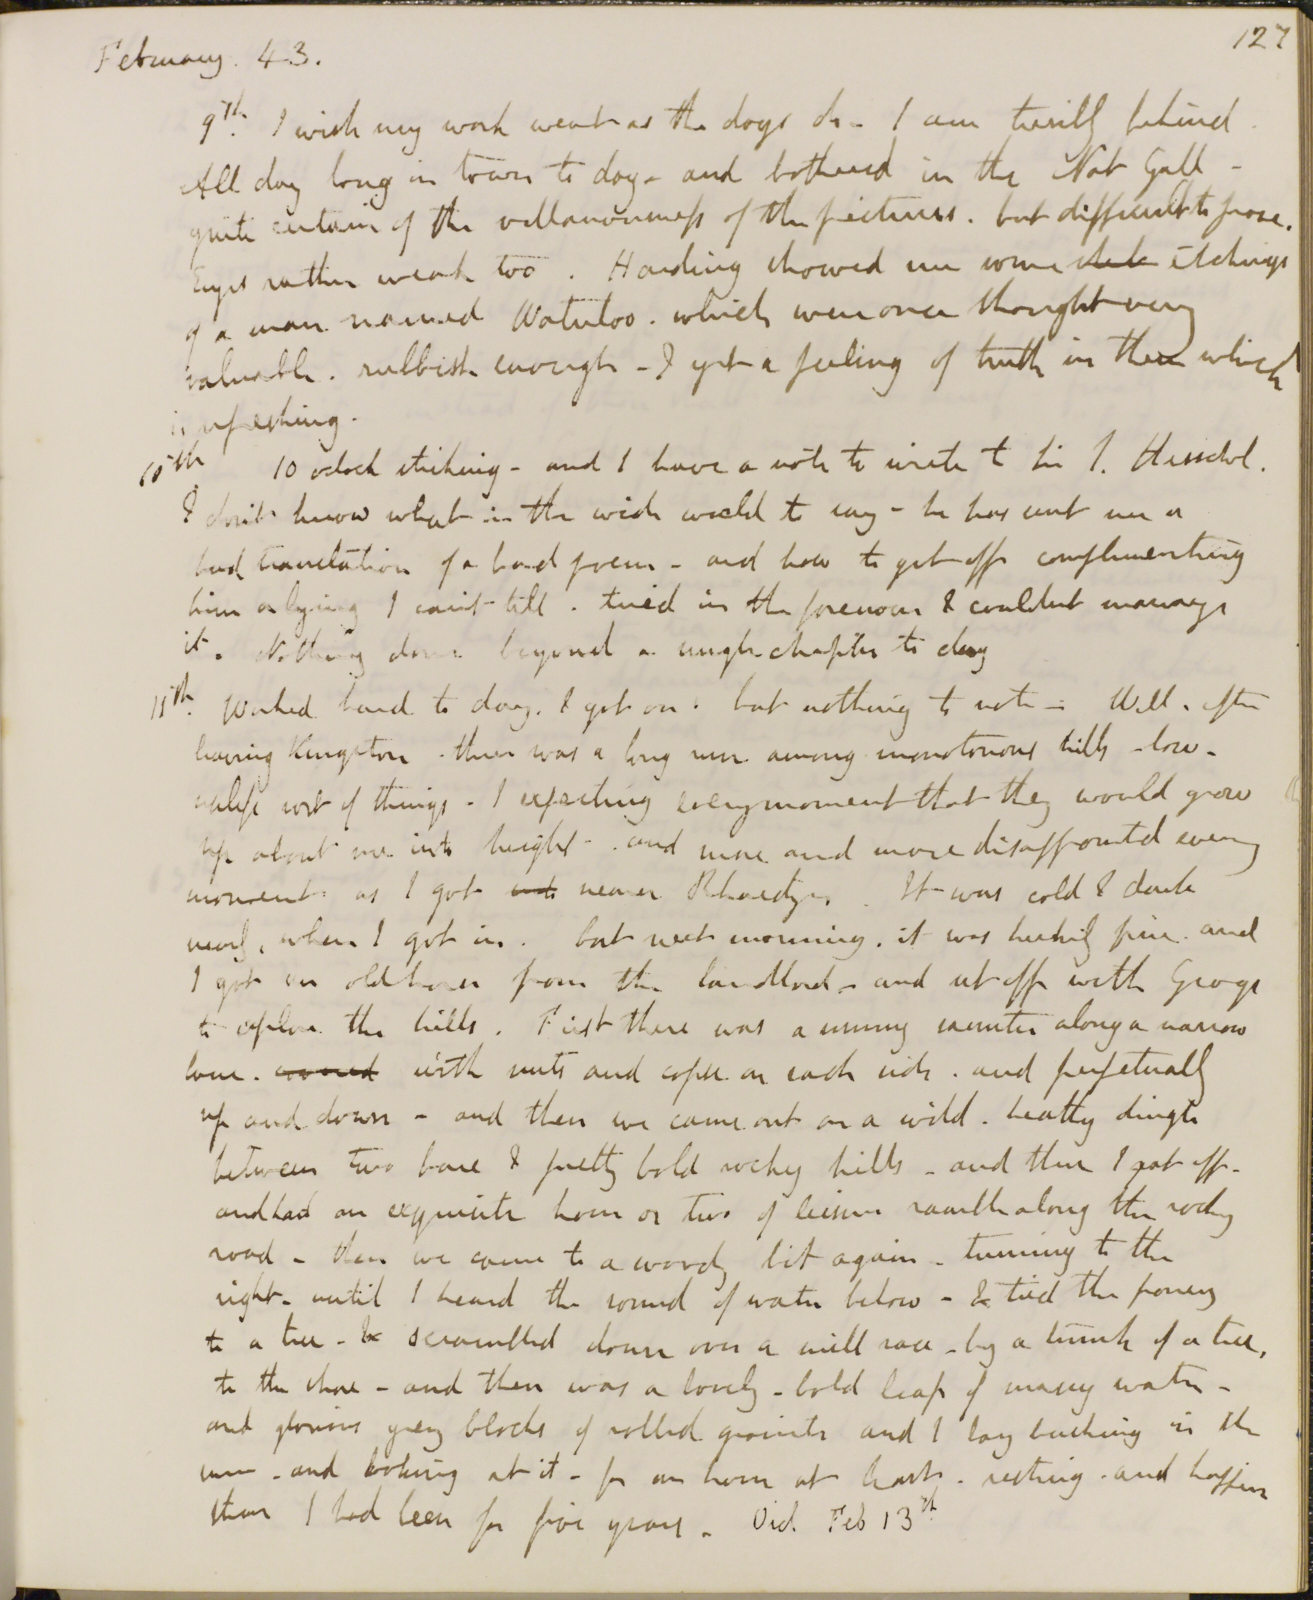 127
February. 43.
9th. I wish my work went as the days do - I am terribly behind.
All day long in town to day - and bothered in the Nat Gall -
quite certain of the villanousness of the pictures. but difficult to prove.
Eyes rather weak too. Harding showed me some etchings
of a man named Waterloo. which were once thought very
valuable. rubbish enough - I get a feeling of truth in them which
is refreshing.
10th 10 oclock striking - and I have a note to write to Sir J. Herschel.
I don't know what in the wide world to say - he has sent me a
bad translation of a bad poem - and how to get off complimenting
him or lying I can't tell. tried in the forenoon & couldnt manage
it. Nothing done beyond a rough chapter to day
11th. Worked hard to day. & got on: but nothing to note - Well. after
leaving Kington. there was a long run among monotonous hills - low -
valife sort of things - I expecting every moment that they would grow
up about me into height - and more and more disappointed every
moment as I got nearer Rhaedyr. It was cold & dark
nearly, when I got in. but next morning. it was tidily fine. and
I got an old horse from the landlord - and set off with George
to explore the hills. First there was a sunny saunter along a narrow
lane. with nuts and copse on each side. and perpetually
up and down - and then we came out on a wild. heathy dingle
between two bare & pretty bold rocky hills - and there I got off -
and had an exquisite hour or two of leisure ramble along the rocky
road - then we came to a woody bit again - turning to the
right - until I heard the sound of water below - & tied the poney
to a tree - & scrambled down over a mill race - by a trunk of a tree,
to the shore - and there was a lovely - bold leap of massy water -
and glorious grey blocks of rolled granite and I lay basking in the
sun - and looking at it - for an hour at least - resting. and happier
than I had been for five years. Vid. Feb 13th